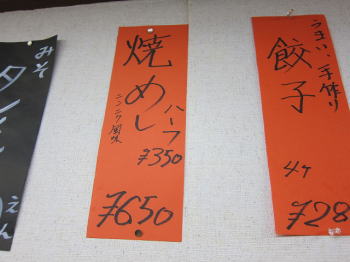 うまい、手作り
餃子
4ケ
¥28
焼めし
ニンニク風味
ハーフ
¥350
¥650
みそ